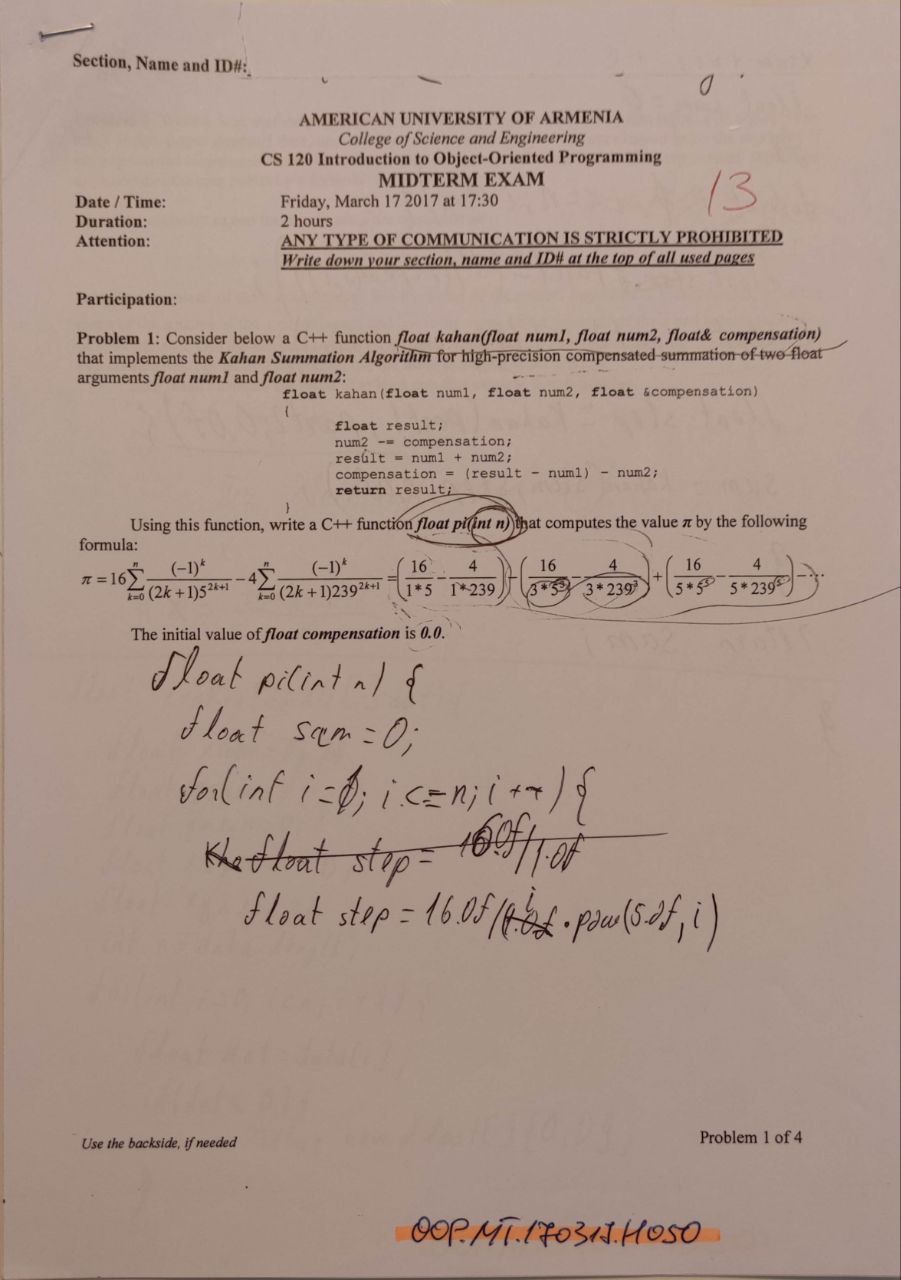 Section, Name and ID#:
AMERICAN UNIVERSITY OF ARMENIA
College of Science and Engineering
CS 120 Introduction to Object-Oriented Programming
MIDTERM EXAM
13
Date / Time: Friday, March 17 2017 at 17:30
Duration: 2 hours
Attention: ANY TYPE OF COMMUNICATION IS STRICTLY PROHIBITED
Write down your section, name and ID# at the top of all used pages
Participation:
Problem 1: Consider below a C++ function float kahan(float num1, float num2, float& compensation)
that implements the Kahan Summation Algorithm for high-precision compensated summation of two float
arguments float num1 and float num2:
float kahan(float num1, float num2, float &compensation)
{
float result;
num2 -= compensation;
result = num1 + num2;
compensation = (result - num1) - num2;
return result;
}
Using this function, write a C++ function float pi(int n) that computes the value π by the following
formula:
π = 16 ∑_{k=0}^{n} (-1)^k / ((2k+1)5^{2k+1}) - 4 ∑_{k=0}^{n} (-1)^k / ((2k+1)239^{2k+1}) = (16/(1*5) - 4/(1*239)) - (16/(3*5^3) - 4/(3*239^3)) + (16/(5*5^5) - 4/(5*239^5)) - ...
The initial value of float compensation is 0.0.
float pi(int n) {
float sum = 0;
for(int i = 0; i <= n; i++) {
float step = 16.0f/1.0f
float step = 16.0f/(i * pow(5.0f, i)
Use the backside, if needed
Problem 1 of 4
OOP.MT.170317.H050